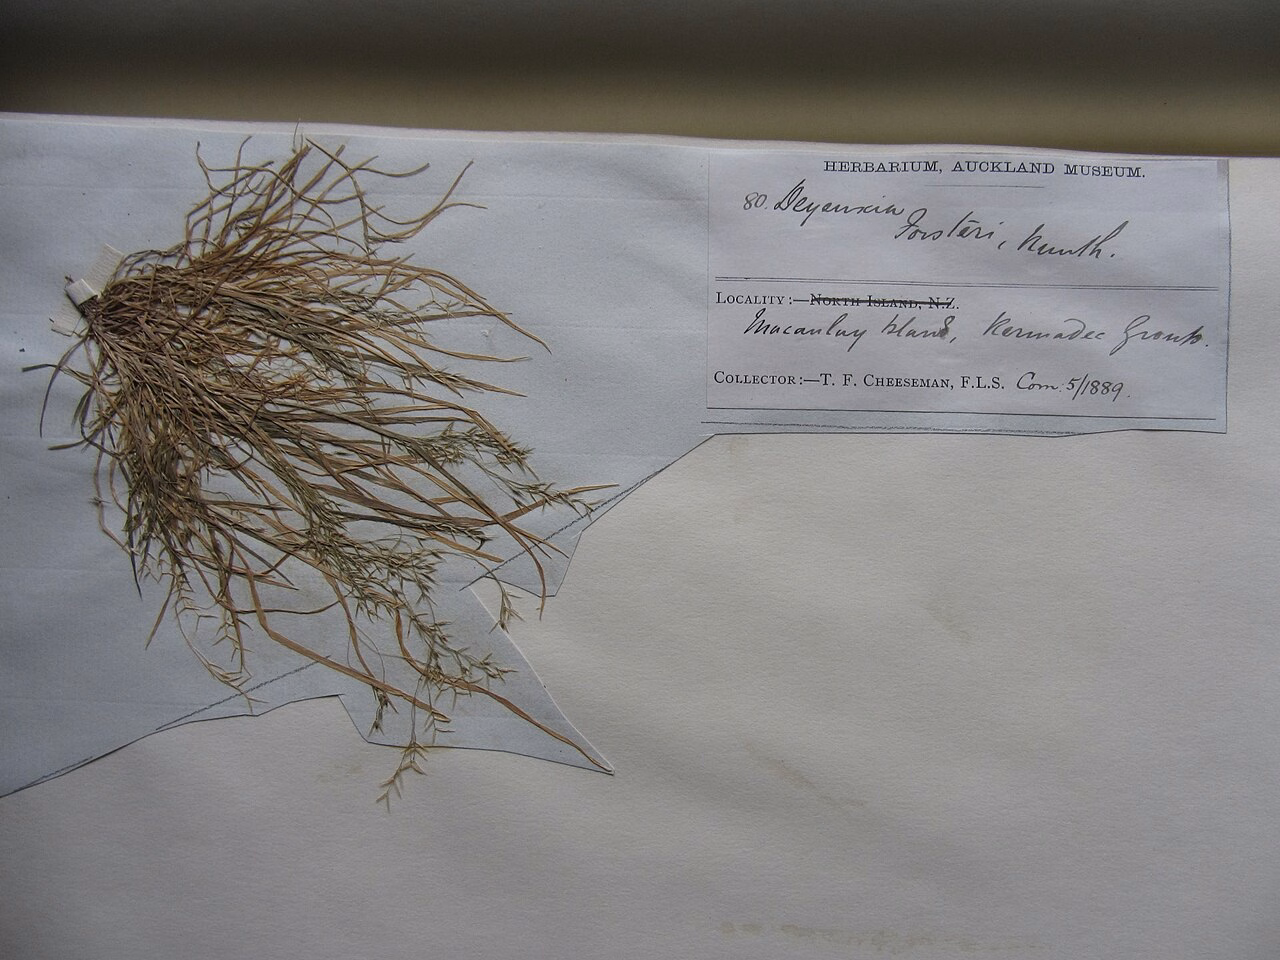 HERBARIUM, AUCKLAND MUSEUM.
80. Deyeuxia
Forsteri, Kunth.
LOCALITY:—NORTH ISLAND, N.Z.
Macaulay Island, Kermadec Group.
COLLECTOR:—T. F. CHEESEMAN, F.L.S. Com: 5/1889.